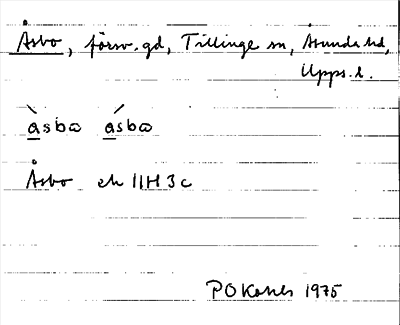 Åsbo, försv. gd, Tillinge sn, Åsunda hd,
Upps. l.
àsbɷ ásbɷ
Åsbo ek 11H 3c
1975